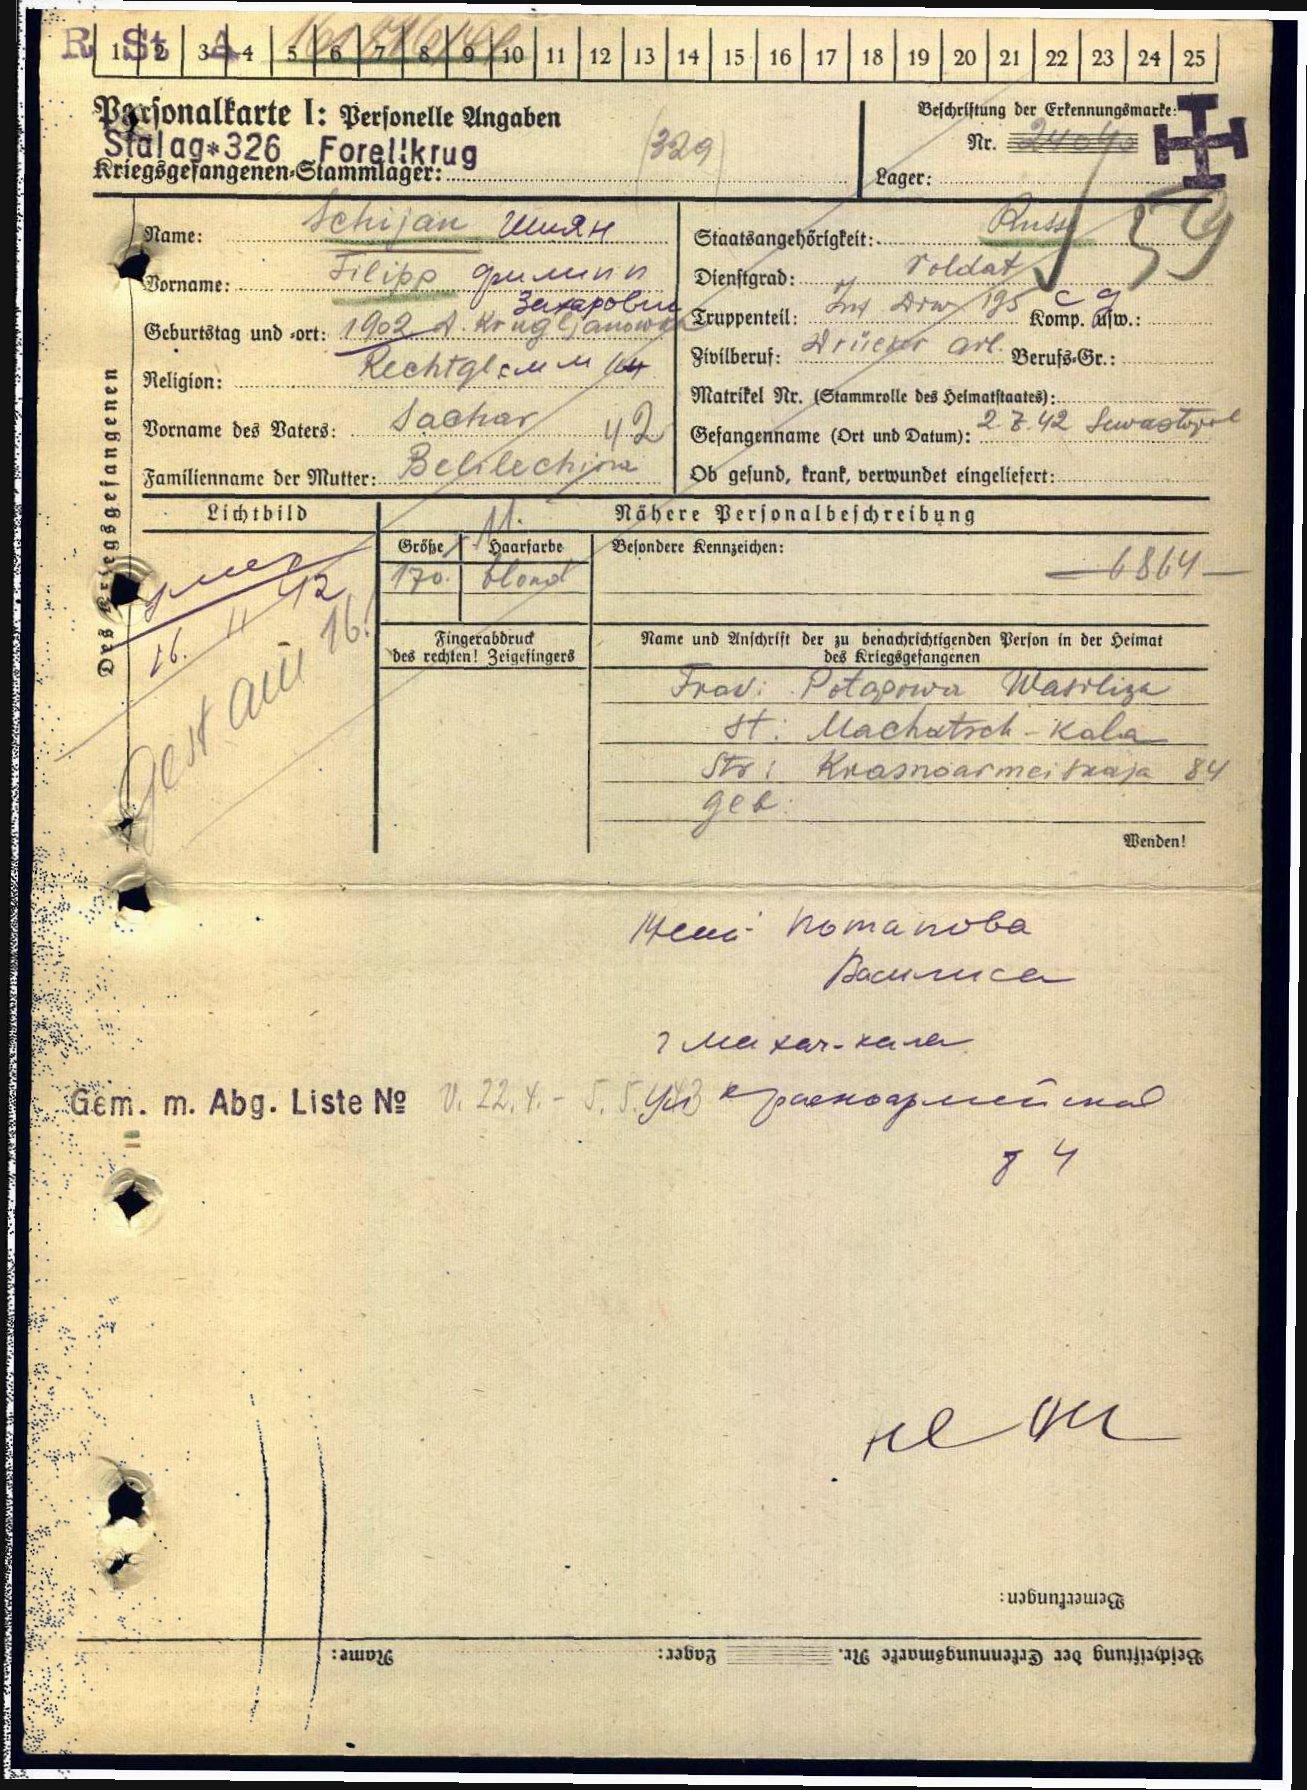 R St A
1 2 3 4 5 6 7 8 9 10 11 12 13 14 15 16 17 18 19 20 21 22 23 24 25
Personalkarte I: Personelle Angaben
Beschriftung der Erkennungsmarke:
Stalag 326 Forellkrug
(329)
Nr. 24040
Kriegsgefangenen-Stammlager:
Lager:
59
Des Kriegsgefangenen
Name: Schijan Шиян
Staatsangehörigkeit: Russe
Vorname: Filipp Филипп
Захарович
Dienstgrad: Soldat
Geburtstag und -ort: 1902
Truppenteil: Inf 195 Komp. usw.:
Religion: Rechtgl.
Zivilberuf: arb. Berufs-Gr.:
Matrikel Nr. (Stammrolle des Heimatstaates):
Vorname des Vaters: Sachar
42
Gefangenname (Ort und Datum): 2.7.42 Sewastopol
Familienname der Mutter:
Ob gesund, krank, verwundet eingeliefert:
Lichtbild
11.
Nähere Personalbeschreibung
Größe Haarfarbe
Besondere Kennzeichen:
170. blond
6864
умер
16. 11 42
Gest am 16.
Fingerabdruck
des rechten! Zeigefingers
Name und Anschrift der zu benachrichtigenden Person in der Heimat
des Kriegsgefangenen
Frau: Potapowa Wasiliza
St: Machatsch-Kala
Str: Krasnoarmeiskaja 84
Geb.
Wenden!
Жена Потапова
Василиса
г Махач-кала
Gem. m. Abg. Liste № v. 22.4. - 5.5.43
ул Красноармейская
84
Bemerkungen:
Beschriftung der Erkennungsmarke Nr. Lager: Name: